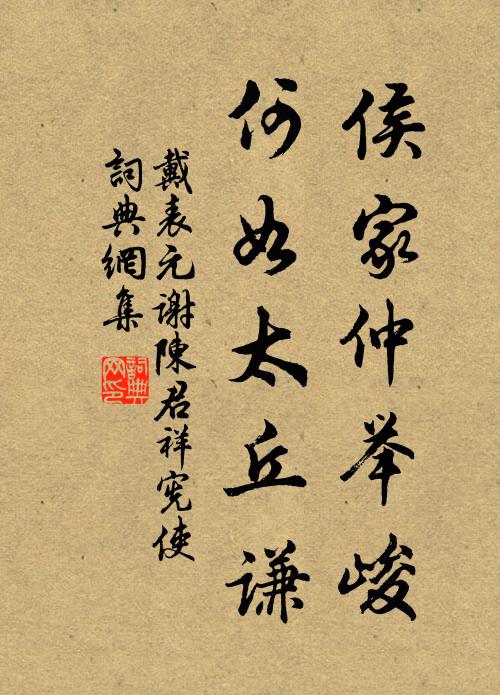 侯家仲举峻
何如太丘谦
戴表元谢陳君祥宪使
詞典網集
詞典网印